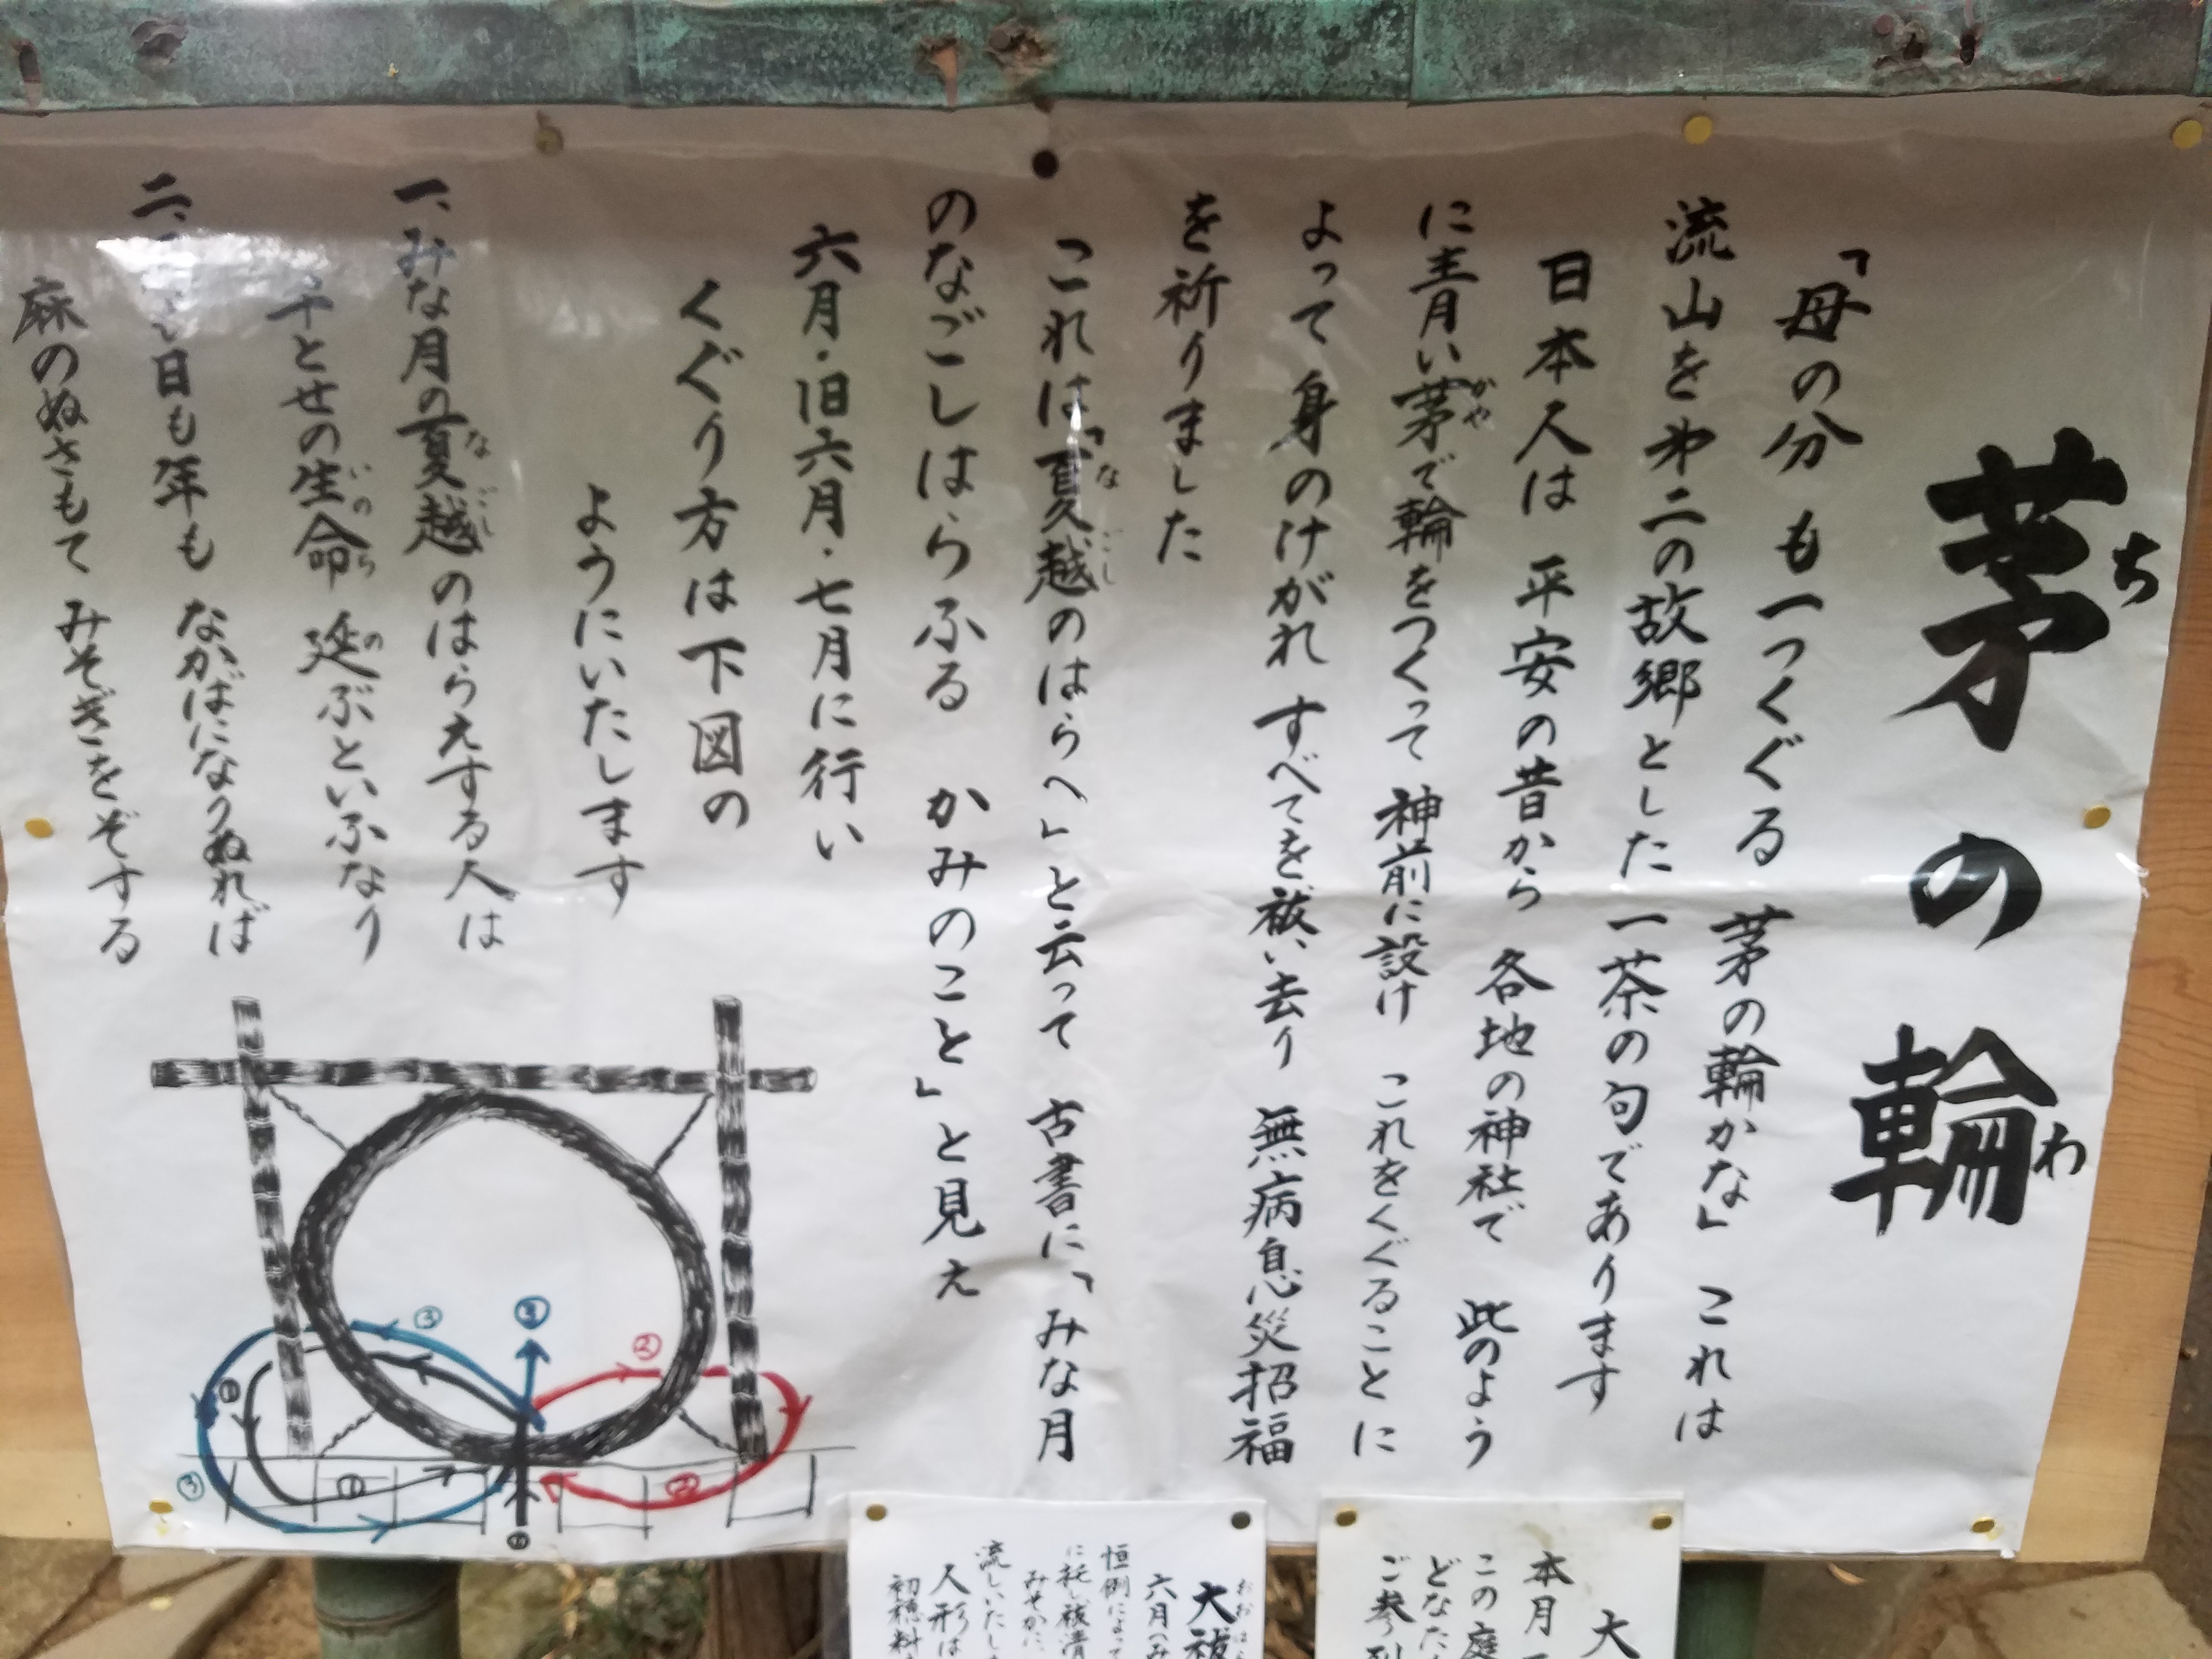 茅の輪
ち
わ
「母の分も一つくぐる 茅の輪かな」 これは
流山を㐧二の故郷とした 一茶の句であります
日本人は 平安の昔から 各地の神社で 此のよう
に青い茅で輪をつくって 神前に設け これをくぐることに
かや
よって 身のけがれ すべてを祓い去り 無病息災招福
を祈りました
これは「夏越のはらへ」と云って 古書に「みな月
なごし
のなごしはらふる かみのこと」と見え
六月・旧六月・七月に行い
くぐり方は下図の
ようにいたします
一、みな月の夏越のはらえする人は
なごし
千とせの生命 延ぶといふなり
いのち
の
二、
日も年も なかばになりぬれば
麻のぬさもて みそぎをぞする
①
①
①
②
②
③
③
大
本月
この庭
どなた
ご参列
大祓
おおはら
六月(み
恒例によって
に託し祓清
みせかに
流しいたし
人形は
初穂料